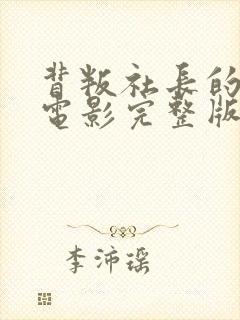 背叛社長的
電影完整版
李沛瑶